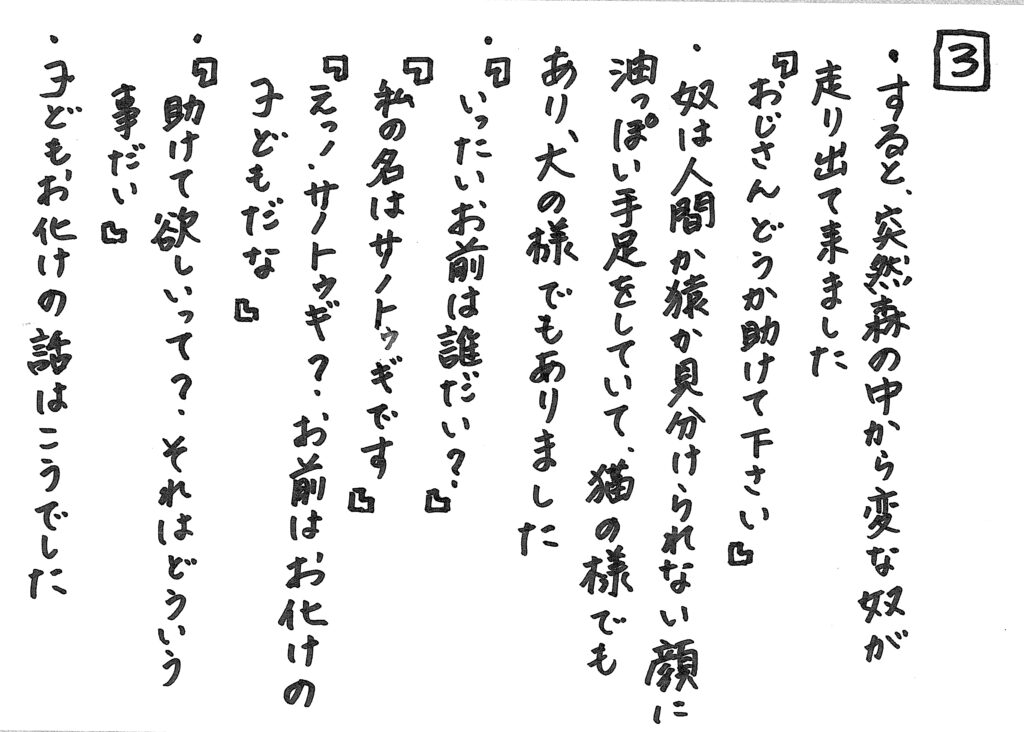 3
・すると、突然森の中から変な奴が
走り出て来ました
『おじさんどうか助けて下さい』
・奴は人間か猿か見分けられない顔に
油っぽい手足をしていて、猫の様でも
あり、犬の様でもありました
・『いったいお前は誰だい?』
『私の名はサノトゥギです』
『えっ、サノトゥギ?、お前はお化けの
子どもだな』
・『助けて欲しいって?、それはどういう
事だい』
・子どもお化けの話はこうでした